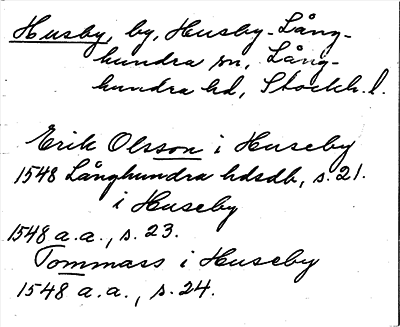 Husby, by, Husby-Lång-
hundra sn, Lång-
hundra hd, Stockh. l.
Erik Olsson i Huseby
1548 Långhundra hdsdb, s. 21.
i Huseby
1548 a.a., s. 23.
Tommass i Huseby
1548 a.a., s. 24.